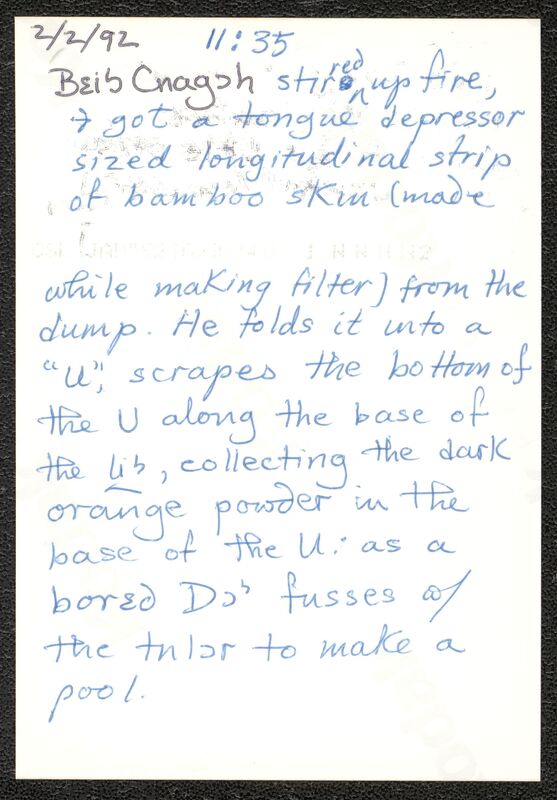 2/2/92 11:35
Bɛiʰ Cnagɔh stirred up fire,
+ got a tongue depressor
sized longitudinal strip
of bamboo skin (made
while making filter) from the
dump. He folds it into a
"U", scrapes the bottom of
the U along the base of
the liʰ, collecting the dark
orange powder in the
base of the U: as a
borɛd Dɔʰ fusses w/
the tnlɔr to make a
pool.